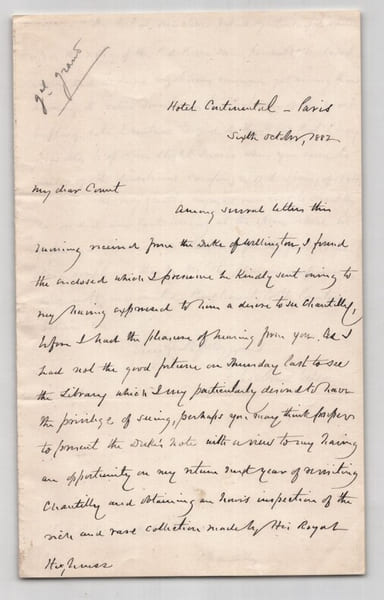 gel grant
Hotel Continental - Paris
Sixth October, 1882
My dear Count
Among several letters this
morning received from the Duke of Wellington, I found
the enclosed which I presume he kindly sent owing to
my having expressed to him a desire to see Chantilly,
before I had the pleasure of hearing from you. As I
had not the good fortune on Thursday last to see
the Library which I very particularly desired to have
the privilege of seeing, perhaps you may think proper
to present the Duke's note with a view to my having
an opportunity on my return next year of revisiting
Chantilly and obtaining an hour's inspection of the
rich and rare collection made by His Royal
Highness